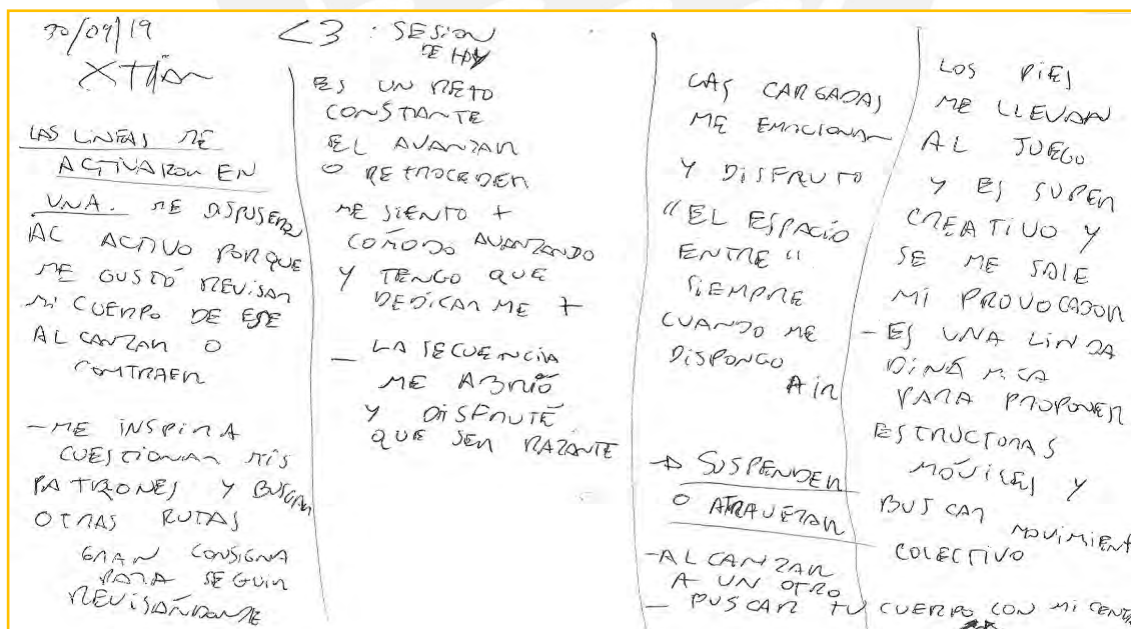 30/09/19
XTIAN
LAS LINEAS ME
ACTIVARON EN
UNA. ME DISPUSIERON
AL ACTIVO PORQUE
ME GUSTÓ REVISAR
MI CUERPO DE ESE
ALCANZAR O
CONTRAER
- ME INSPIRA
CUESTIONAR MIS
PATRONES Y BUSCAR
OTRAS RUTAS
GRAN CONSIGNA
PARA SEGUIR
REVISÁNDOME
<3 : SESION
DE HOY
ES UN RETO
CONSTANTE
EL AVANZAR
O RETROCEDER
ME SIENTO +
COMODO AVANZANDO
Y TENGO QUE
DEDICARME +
- LA SECUENCIA
ME ABRIÓ
Y DISFRUTÉ
QUE SER RAZANTE
LAS CARGADAS
ME EMOCIONAN
Y DISFRUTO
"EL ESPACIO
ENTRE"
SIEMPRE
CUANDO ME
DISPONGO
A IR
→ SUSPENDER
O ATRAVEZAR
- ALCANZAR
A UN OTRO
- BUSCAR TU CUERPO CON MI
LOS PIES
ME LLEVAN
AL JUEGO
Y ES SUPER
CREATIVO Y
SE ME SALE
MI PROVOCADOR
- ES UNA LINDA
DINÁMICA
PARA PROPONER
ESTRUCTURAS
MÓVILES Y
BUSCAR MOVIMIENTO
COLECTIVO